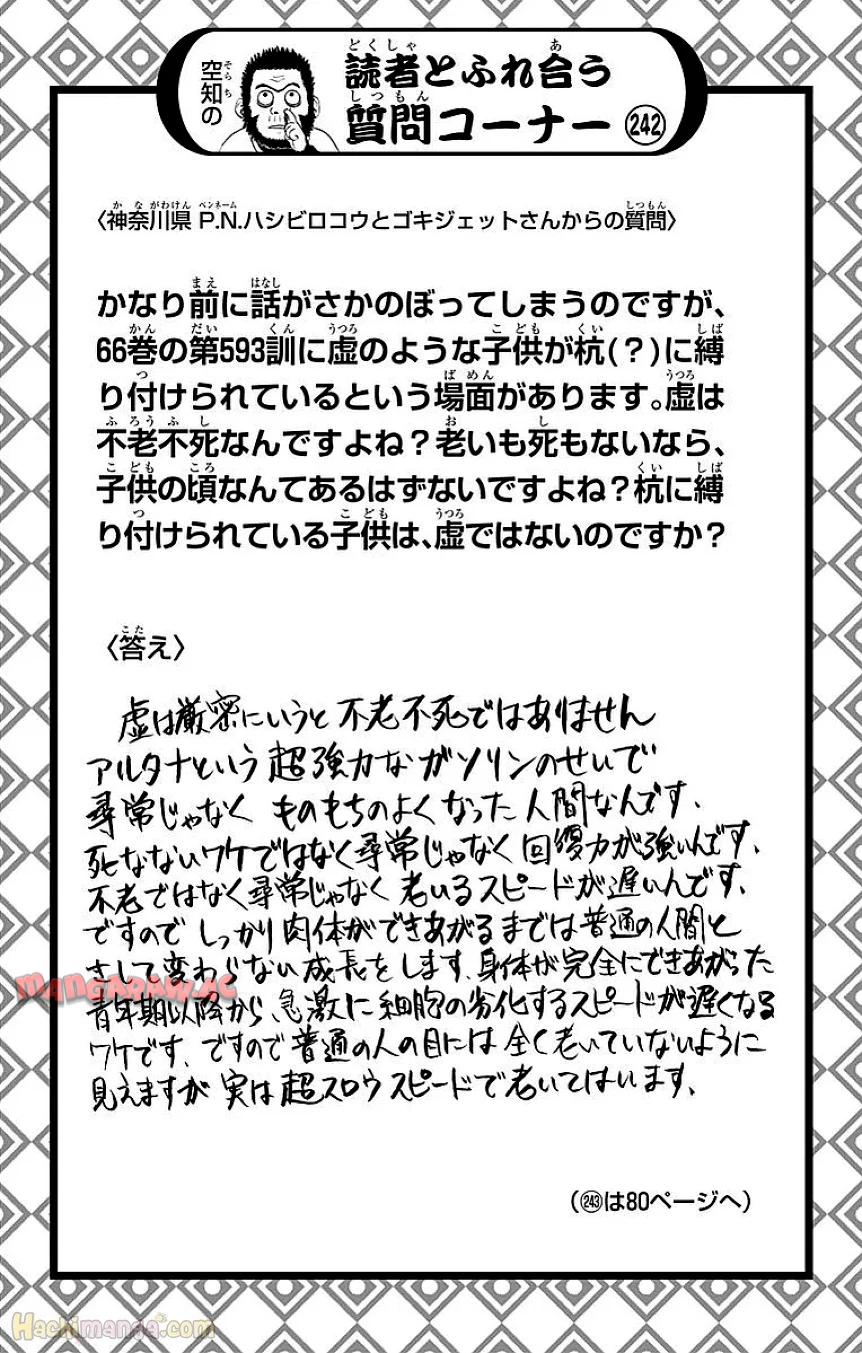 空知の
読者とふれ合う
質問コーナー 242
〈神奈川県 P.N.ハシビロコウとゴキジェットさんからの質問〉
かなり前に話がさかのぼってしまうのですが、
66巻の第593訓に虚のような子供が杭(?)に縛
り付けられているという場面があります。虚は
不老不死なんですよね?老いも死もないなら、
子供の頃なんてあるはずないですよね?杭に縛
り付けられている子供は、虚ではないのですか?
〈答え〉
虚は厳密にいうと不老不死ではありません
アルタナという超強力なガソリンのせいで
尋常じゃなく ものもちのよくなった人間なんです、
死なないワケではなく尋常じゃなく回復力が強いんです、
不老ではなく尋常じゃなく老いるスピードが遅いんです、
ですので しっかり肉体ができあがるまでは普通の人間と
さして変わらない成長をします、身体が完全にできあがった
青年期以降から、急激に細胞の劣化するスピードが遅くなる
ワケです、ですので普通の人の目には全く老いていないように
見えますが実は超スロウスピードで老いてはいます、
(243は80ページへ)
MANGARAW.AC
Hachimanga.com